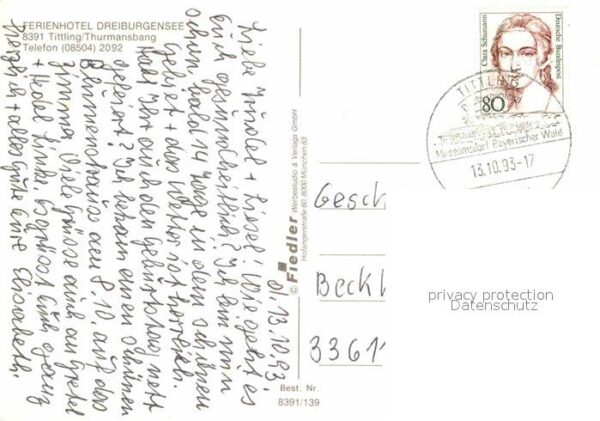 FERIENHOTEL DREIBURGENSEE
8391 Tittling/Thurmansbang
Telefon (08504) 2092
D. 13.10.93.
Liebe Mündel + Liesel! Wie geht es
Euch gesundheitlich? Ich bin nun
schon bald 14 Tage in dem schönen
Gebiet + das Wetter ist herrlich.
Habt Ihr auch den Geburtstag nett
gefeiert? Ich bekam einen schönen
Blumenstrauss am 8.10. auf das
Zimmer. Viele Grüsse auch an Gretel
+ Hedel Liebe. Es grüsst Euch ganz
herzlich + alles Gute Eure Elisabeth.
© Fiedler Werbestudio & Verlags GmbH
Hofangerstraße 60, 8000 München 83
Best. Nr.
8391/139
Clara Schumann
Deutsche Bundespost
80
TITTLING
Museumsdorf Bayerischer Wald
13.10.93-17
Gesch
Beckh
33611
privacy protection
Datenschutz